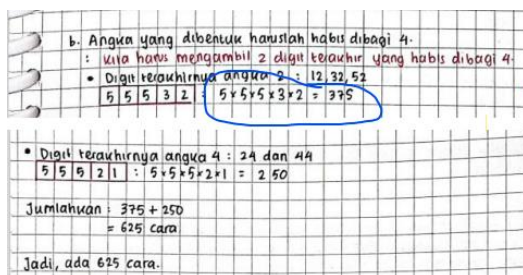 b. Angka yang dibentuk haruslah habis dibagi 4.
: Kita harus mengambil 2 digit terakhir yang habis dibagi 4.
• Digit terakhirnya angka 2 : 12, 32, 52
5 5 5 3 2 : 5 x 5 x 5 x 3 x 2 = 375
• Digit terakhirnya angka 4 : 24 dan 44
5 5 5 2 1 : 5 x 5 x 5 x 2 x 1 = 250
Jumlahkan : 375 + 250
= 625 cara
Jadi, ada 625 cara.